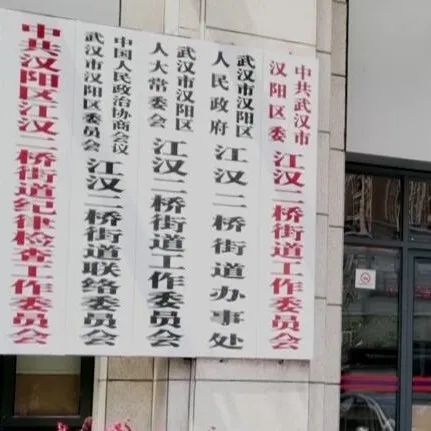 中共武汉市
汉阳区委
江汉二桥街道工作委员会
武汉市汉阳区
人民政府
江汉二桥街道办事处
武汉市汉阳区
人大常委会
江汉二桥街道工作委员会
中国人民政治协商会议
武汉市汉阳区委员会
江汉二桥街道联络委员会
中共汉阳区江汉二桥街道纪律检查工作委员会